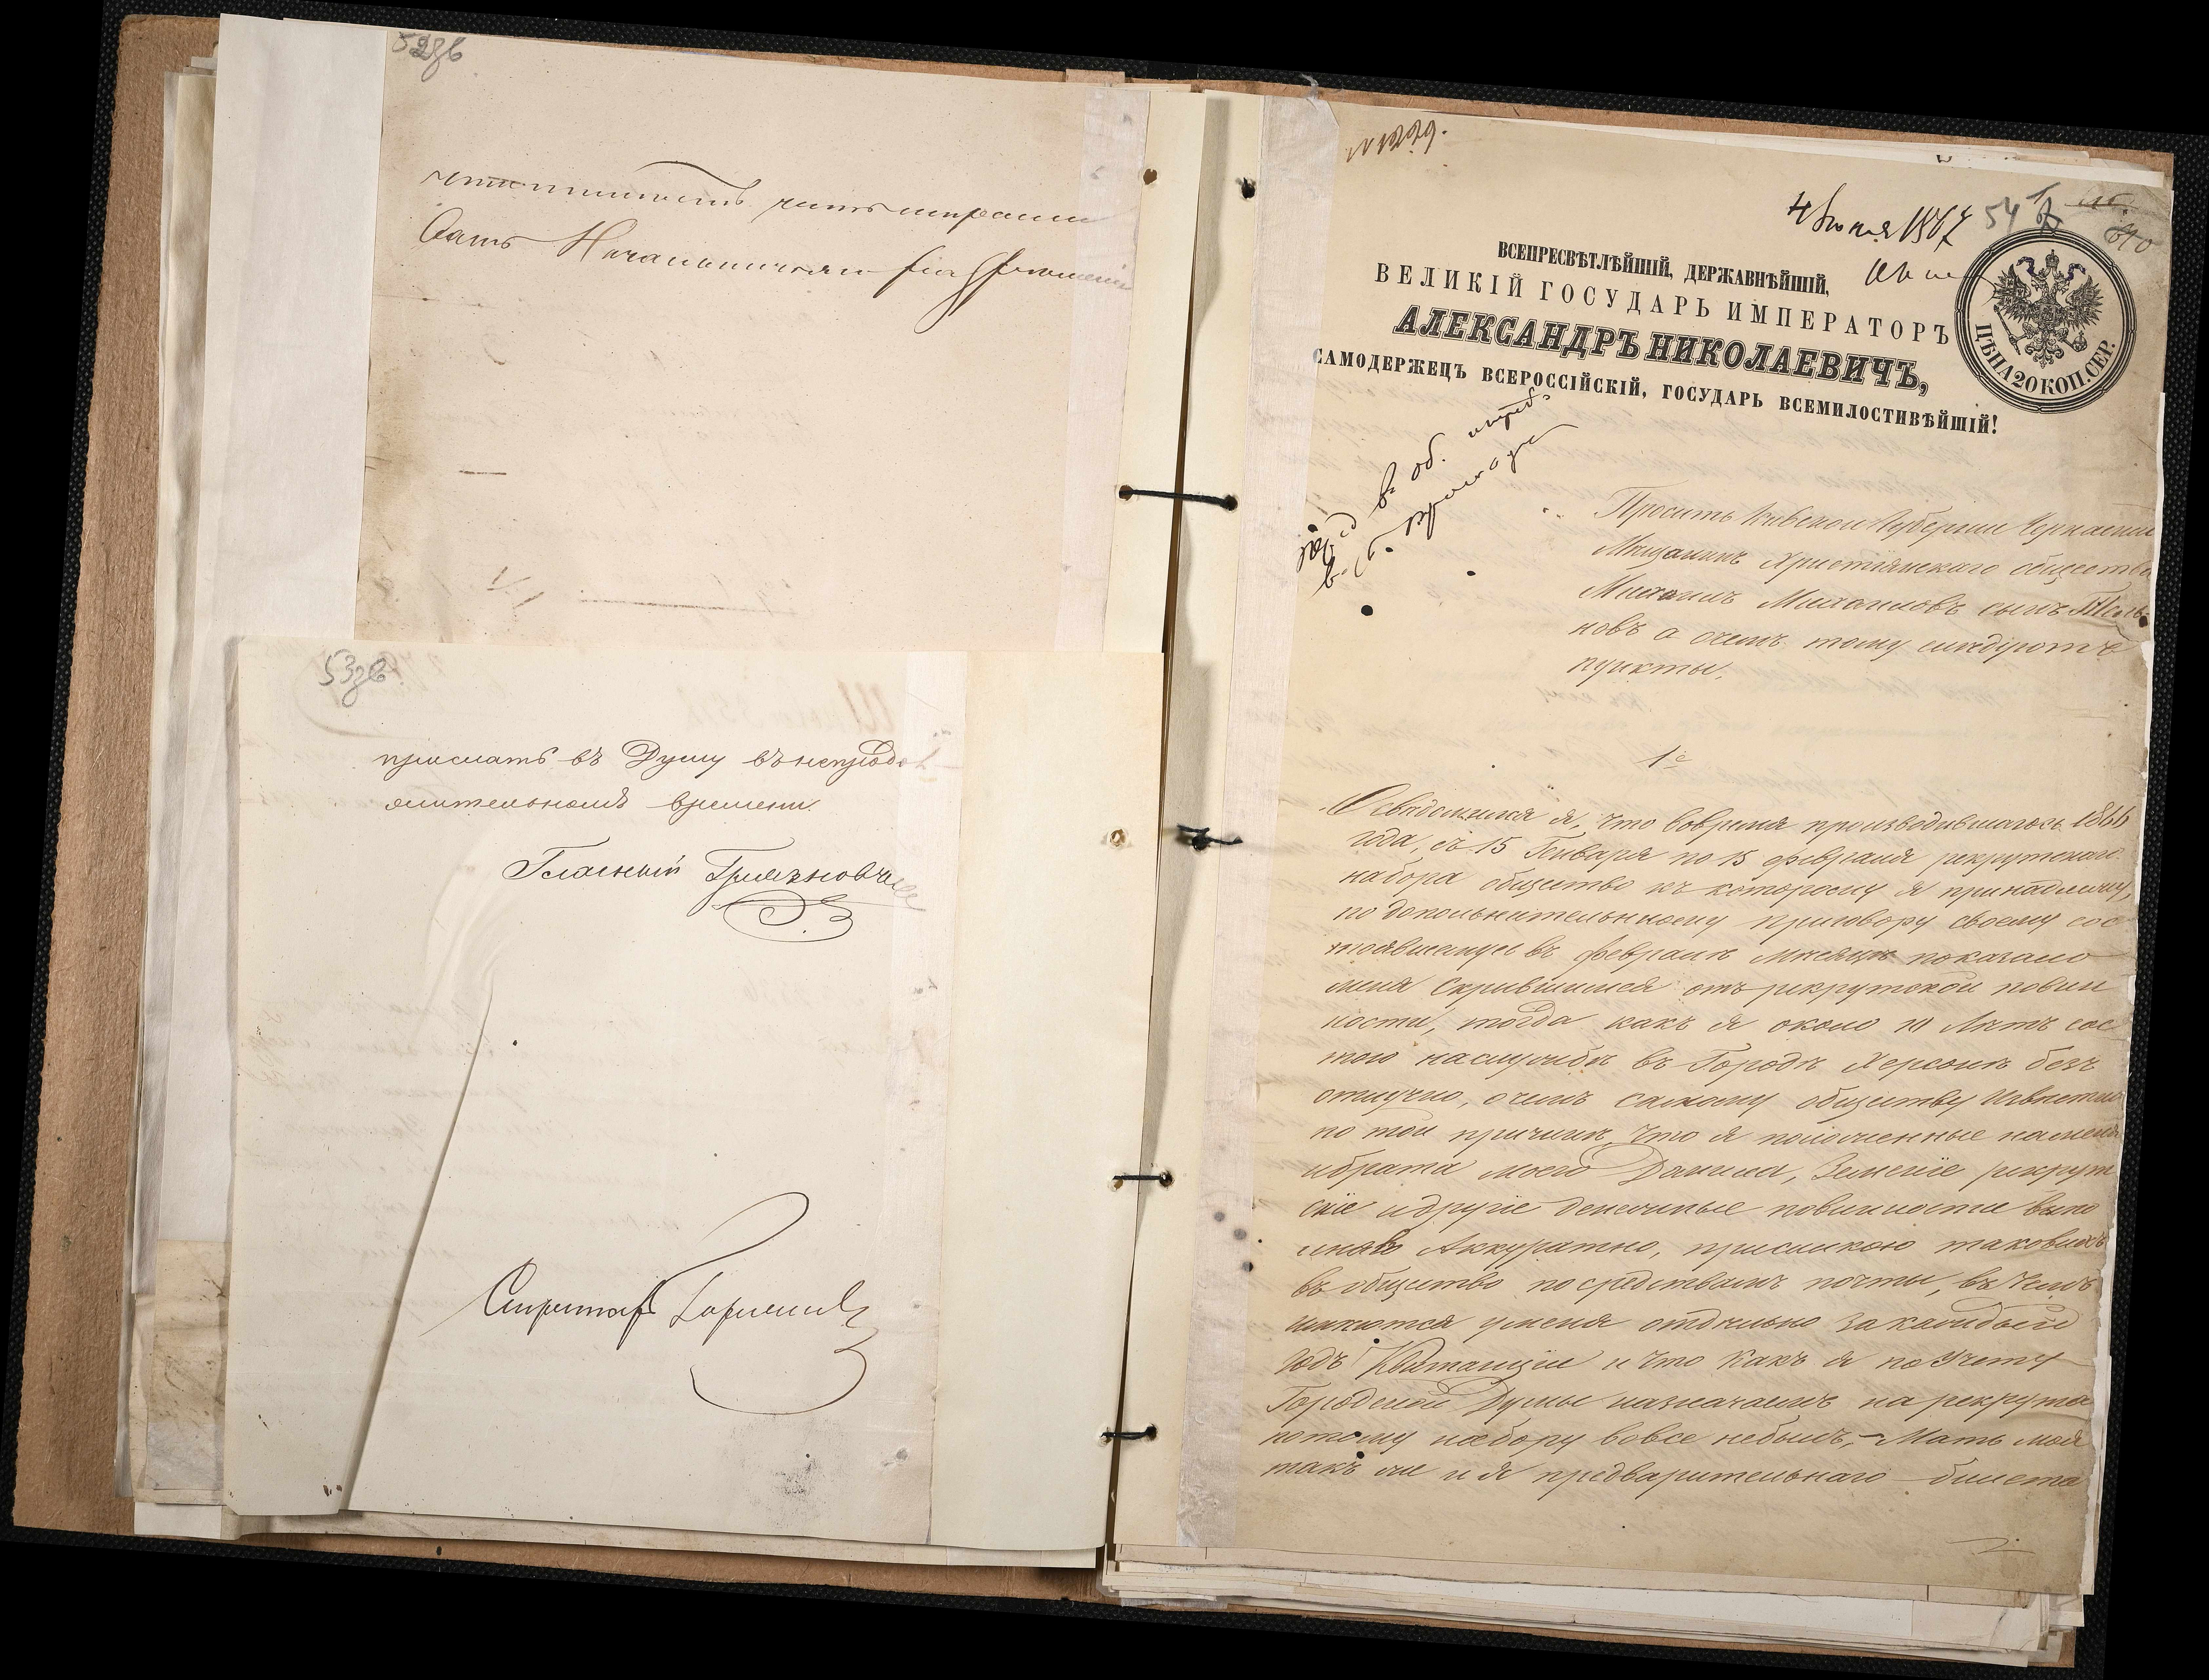 52зв
53зв
прислать въ Думу въ непродол
жительномъ времени.
Гласный
Секретарь
4 Июня 1867
54
ВСЕПРЕСВѢТЛѢЙШІЙ, ДЕРЖАВНѢЙШІЙ,
ВЕЛИКІЙ ГОСУДАРЬ ИМПЕРАТОРЪ
АЛЕКСАНДРЪ НИКОЛАЕВИЧЪ,
САМОДЕРЖЕЦЪ ВСЕРОССІЙСКІЙ, ГОСУДАРЬ ВСЕМИЛОСТИВѢЙШІЙ!
ЦѢНА 20 КОП. СЕР.
Проситъ Кіевской Губерніи Черкаскій
Мѣщанинъ Христіянскаго общества
Михаилъ Михаиловъ сынъ
новъ а очемъ тому слѣдуютъ
пункты.
1е
Освѣдомился я, что вовремя производившагось 1866
года, съ 15 Генваря по 15 февраля рекрутскаго
набора общество къ которому я принадлежу,
по дополнительнному приговору своему сос
тоявшемуся въ февралѣ мѣсяцѣ показало
меня Скрывшимся отъ рекрутской повин
ности, тогда какъ я около 10 Лѣтъ сос
тою наслужбѣ въ Городѣ Херсонѣ безъ
отлучно, очемъ самому обществу Извѣстно
по той причинѣ, что я положенные наменя
ибрата моего Данила, Земскіе рекрут
скіе идругіе денежные повинности выпо
лнялъ Аккуратно, присылкою таковыхъ
въ общество посредствамъ почты, въ чемъ
имѣются уменя отдѣльно закаждый
годъ Квитанціи и что какъ я по Учету
Городской Думы назначаемъ на рекрута
потому набору вовсе небылъ,- Мать моя
такъ же и я предварительнаго билета